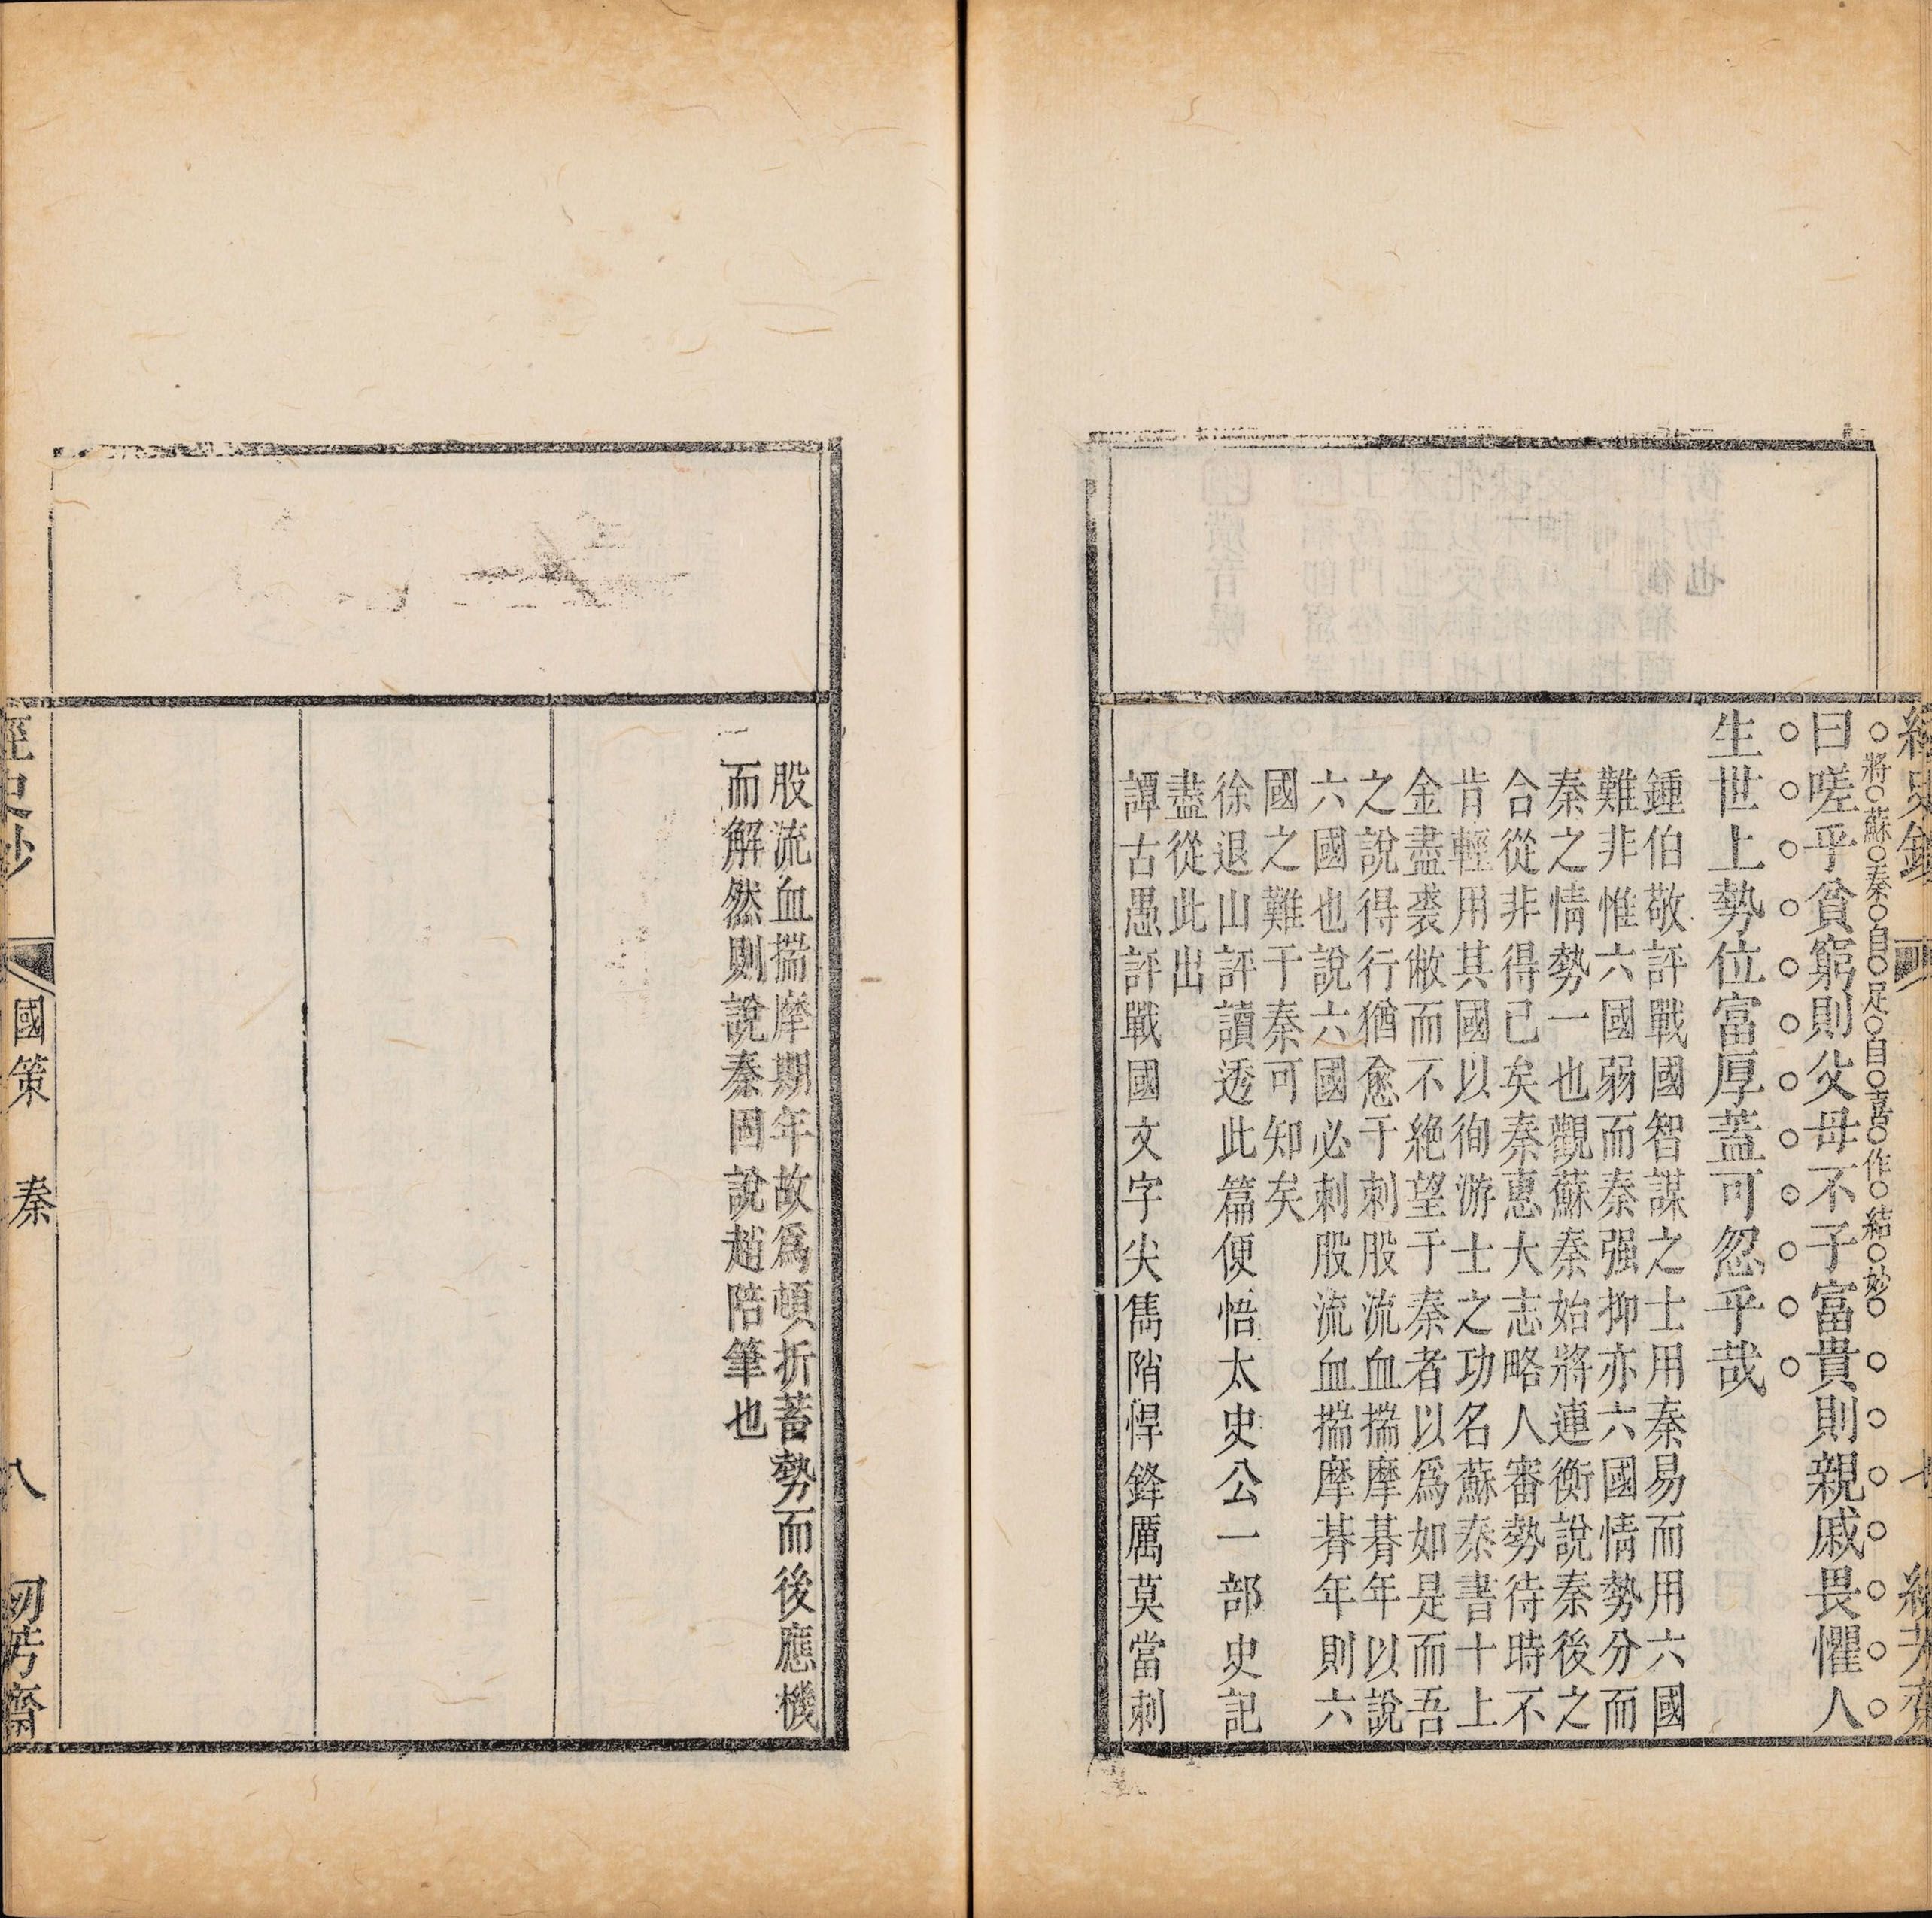 曰嗟乎貧窮則父母不子富貴則親戚畏懼人
將蘇秦自足自喜作結妙
生世上勢位富厚蓋可忽乎哉
鍾伯敬評戰國智謀之士用秦易而用六國
難非惟六國弱而秦强抑亦六國情勢分而
秦之情勢一也觀蘇秦始將連衡說秦後之
合從非得已矣秦惠大志略人審勢待時不
肯輕用其國以徇游士之功名蘇秦書十上
金盡裘敝而不絶望于秦者以爲如是而吾
之說得行猶愈于刺股流血揣摩朞年以說
六國也說六國必刺股流血揣摩朞年則六
國之難于秦可知矣
徐退山評讀透此篇便悟太史公一部史記
盡從此出
譚古愚評戰國文字尖雋隋悍鋒厲莫當刺
股流血揣摩期年故爲頓折蓄勢而後應機
而解然則說秦固說趙陪筆也
國策 秦 八